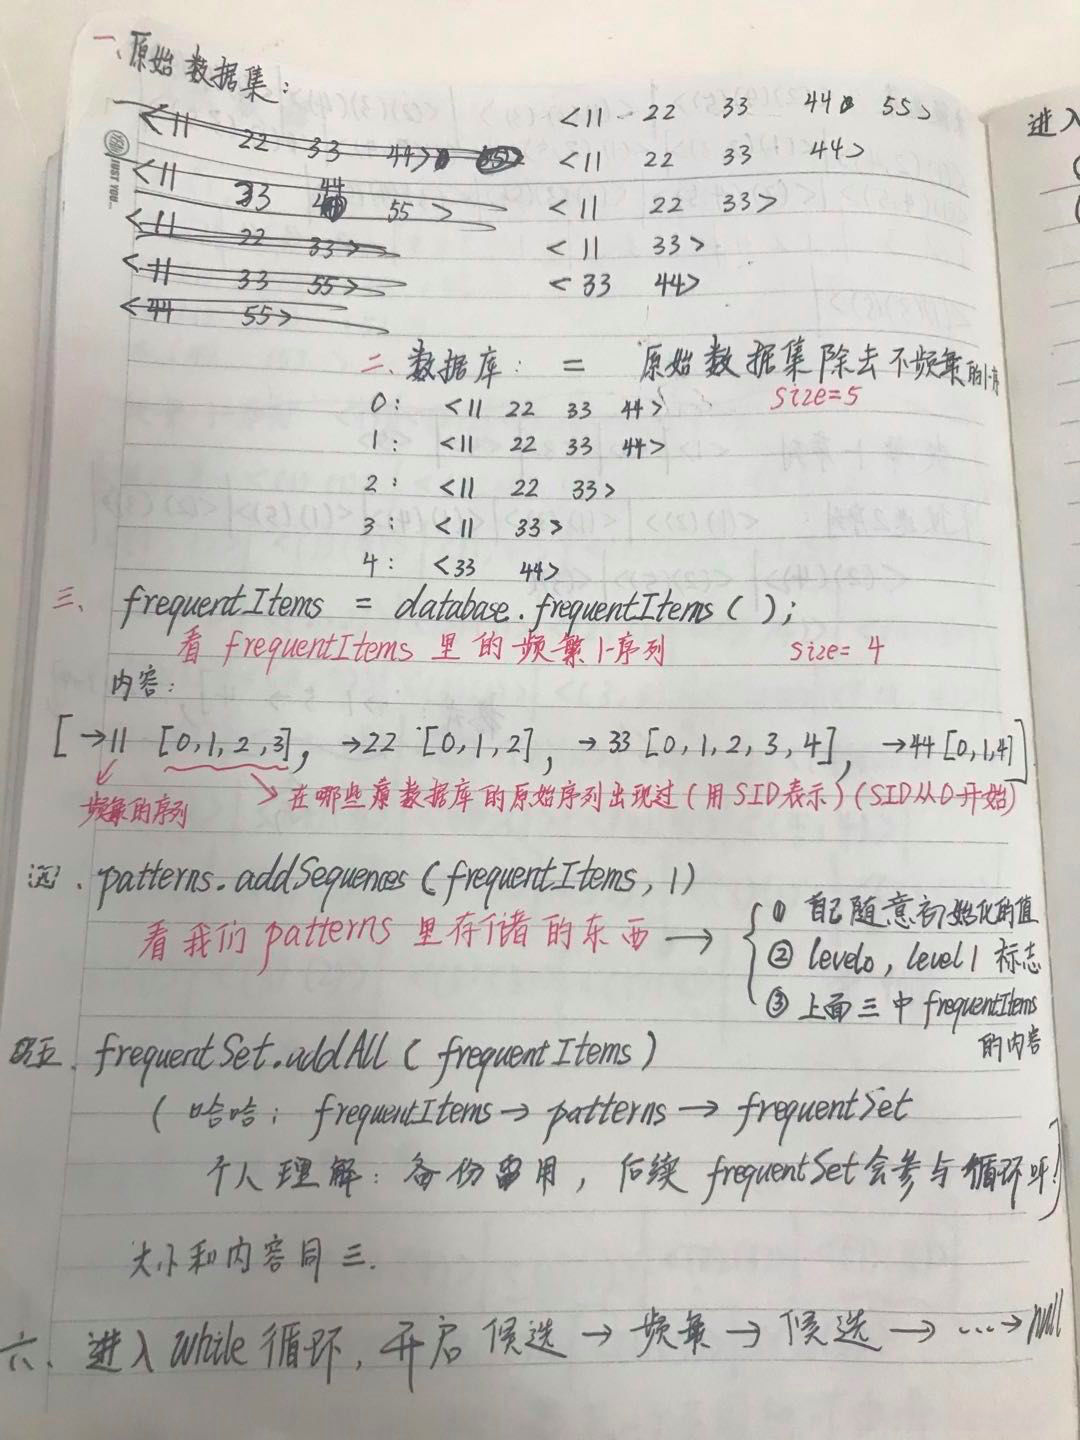 一、原始数据集:
<11 22 33 44 55>
<11 22 33 44> 55>
<11 22 33 44>
<11 33 44 55>
<11 22 33>
<11 22 33>
<11 33>
<11 33 55>
<33 44>
<44 55>
JUST YOU...
二、数据库: = 原始数据集除去不频繁的1-序
size=5
0: <11 22 33 44>
1: <11 22 33 44>
2: <11 22 33>
3: <11 33>
4: <33 44>
三、frequentItems = database.frequentItems();
看 frequentItems 里的频繁1-序列 size=4
内容:
[→11 [0,1,2,3], →22 [0,1,2], →33 [0,1,2,3,4], →44[0,1,4]]
频繁的序列
在哪些 数据库的原始序列出现过(用SID表示)(SID从0开始)
patterns.addSequences(frequentItems,1)
看我们patterns里存储的东西→
① 自己随意初始化的值
② level0, level1 标志
③ 上面三中 frequentItems
的内容
五、frequentSet.addAll(frequentItems)
(哈哈: frequentItems→patterns→frequentSet
个人理解:备份 用,后续frequentSet会参与循环呀!)
大小和内容同三.
六、进入while循环,开启候选→频繁→候选→...→null
进入